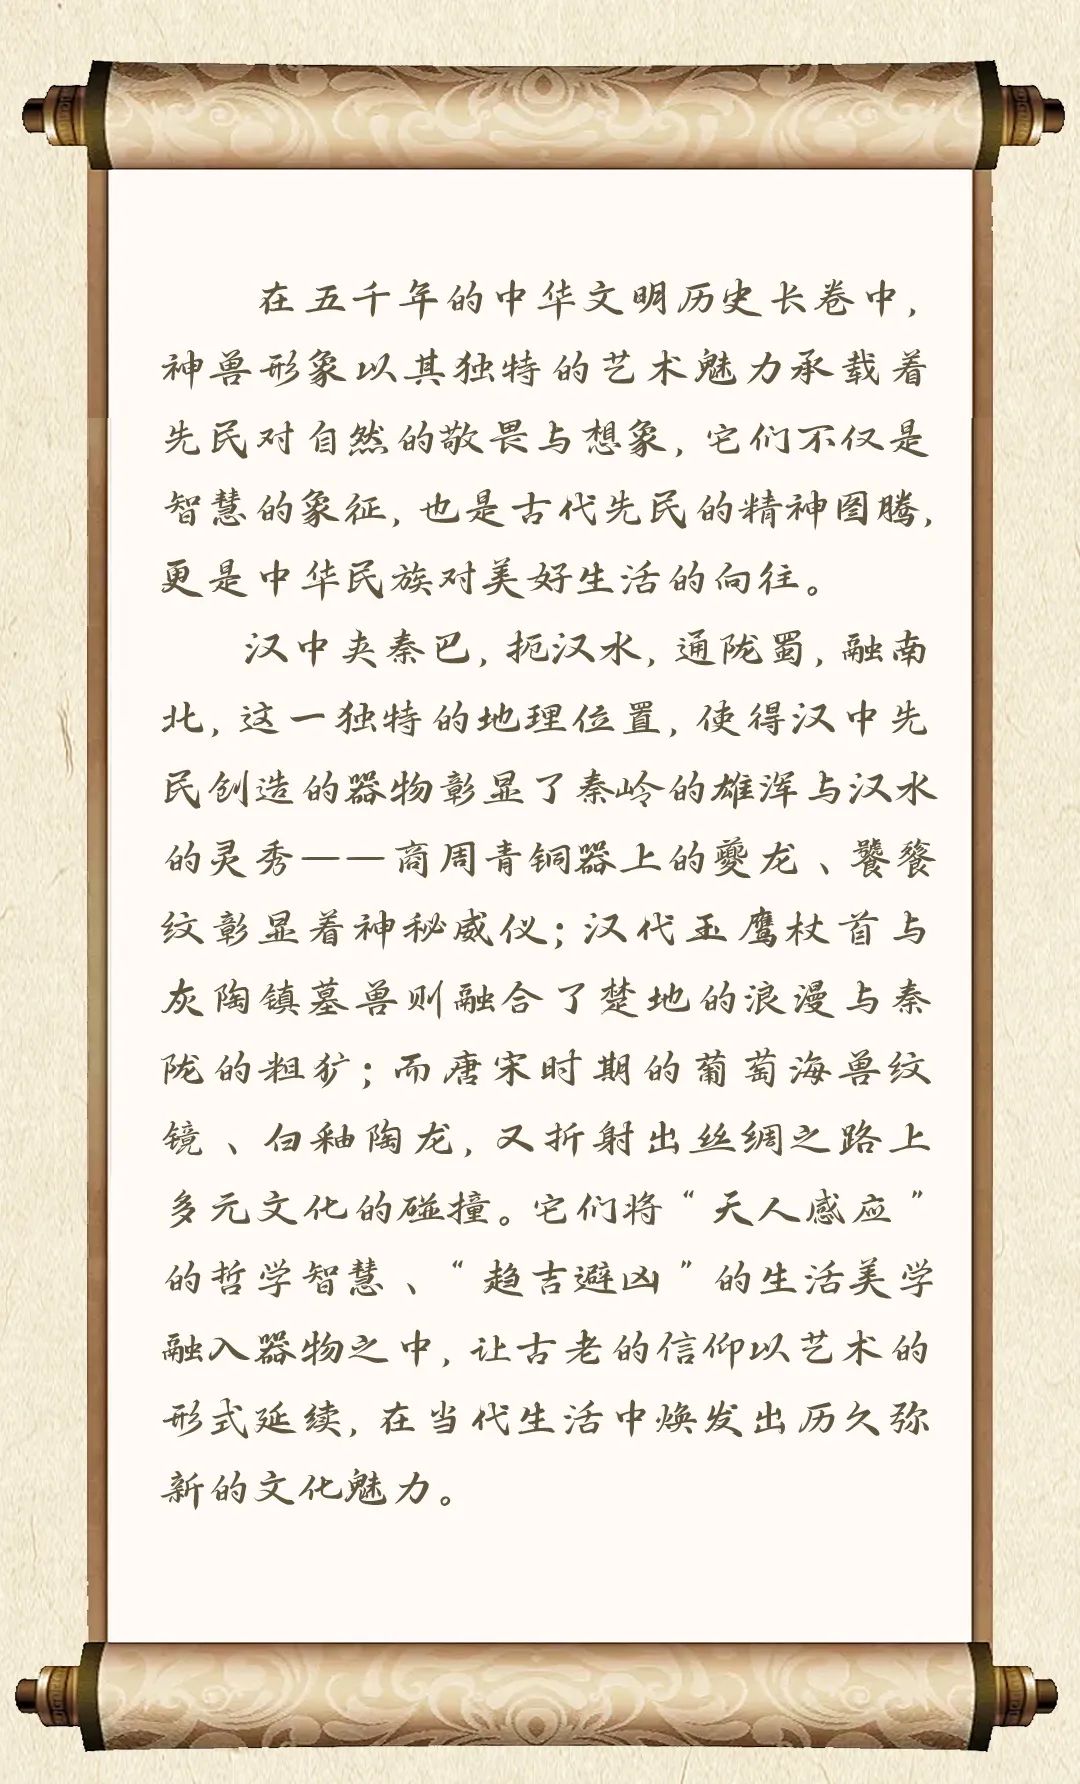 在五千年的中华文明历史长卷中，
神兽形象以其独特的艺术魅力承载着
先民对自然的敬畏与想象，它们不仅是
智慧的象征，也是古代先民的精神图腾，
更是中华民族对美好生活的向往。
汉中夹秦巴，扼汉水，通陇蜀，融南
北，这一独特的地理位置，使得汉中先
民创造的器物彰显了秦岭的雄浑与汉水
的灵秀——商周青铜器上的夔龙、饕餮
纹彰显着神秘威仪；汉代玉鹰杖首与
灰陶镇墓兽则融合了楚地的浪漫与秦
陇的粗犷；而唐宋时期的葡萄海兽纹
镜、白釉陶龙，又折射出丝绸之路上
多元文化的碰撞。它们将“天人感应”
的哲学智慧、“趋吉避凶”的生活美学
融入器物之中，让古老的信仰以艺术的
形式延续，在当代生活中焕发出历久弥
新的文化魅力。